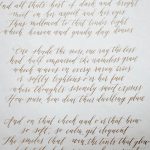 And all that's best of dark and bright
meet in her aspect and her eyes
Thus mellowed to that tender light
which heaven gaudy day denies
One shade the more, one ray the less
Had half impaired the nameless grace
which waves in every raven tress
or softly lightens o'er her face
where thoughts serenely sweet express
How pure how dear their dwelling place
And on that cheek and o'er that brow
so soft, so calm, yet eloquent
The smiles that win, the tints that glow